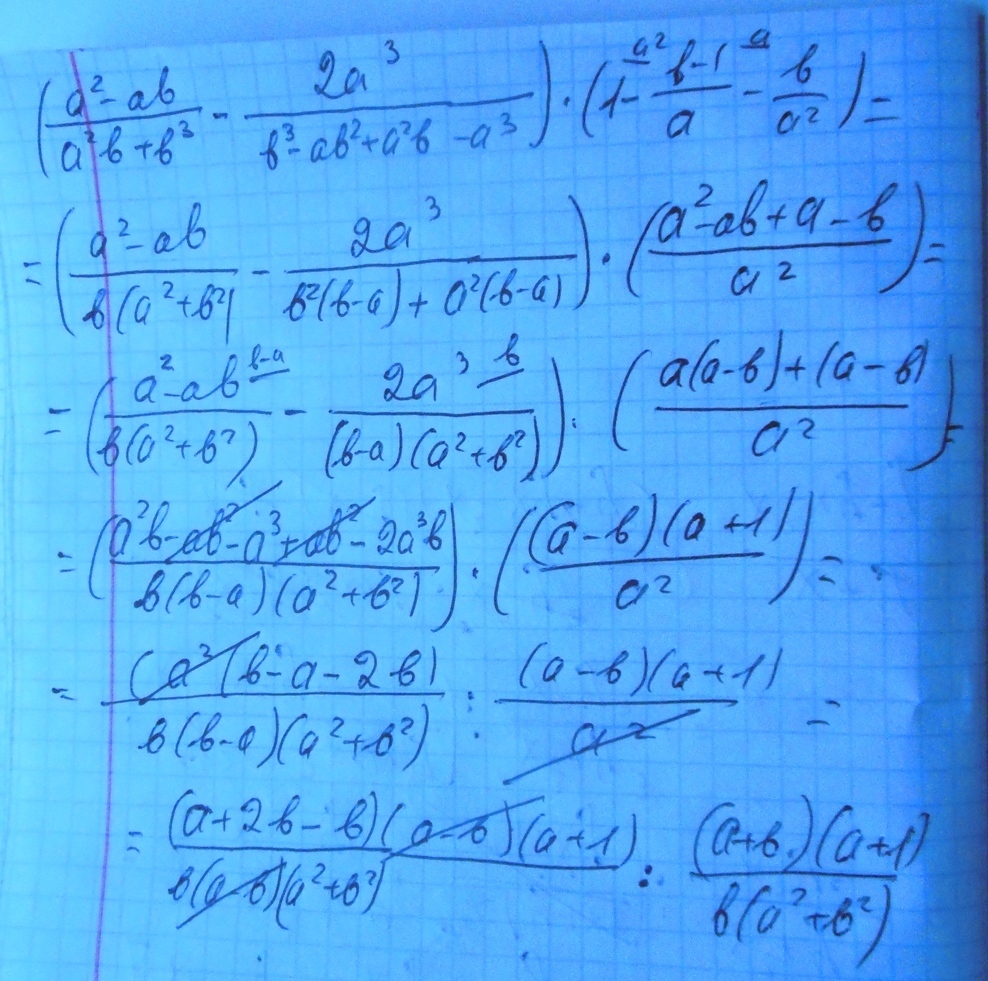 (a²-ab / a²b+b³ - 2a³ / b³-ab²+a²b-a³) · (1 - b-1 / a - b / a²) = a² a
= (a²-ab / b(a²+b²) - 2a³ / b²(b-a)+a²(b-a)) · (a²-ab+a-b / a²) =
= (a²-ab / b(a²+b²) - 2a³ / (b-a)(a²+b²)) : (a(a-b)+(a-b) / a²) = b-a b
= (a²b-ab²-a³+ab²-2a³b / b(b-a)(a²+b²)) · ((a-b)(a+1) / a²) =
= (a²(b-a-2b) / b(b-a)(a²+b²) : (a-b)(a+1) / a² =
= (a+2b-b)(a-b)(a+1) / b(a-b)(a²+b²) : (a+b)(a+1) / b(a²+b²)